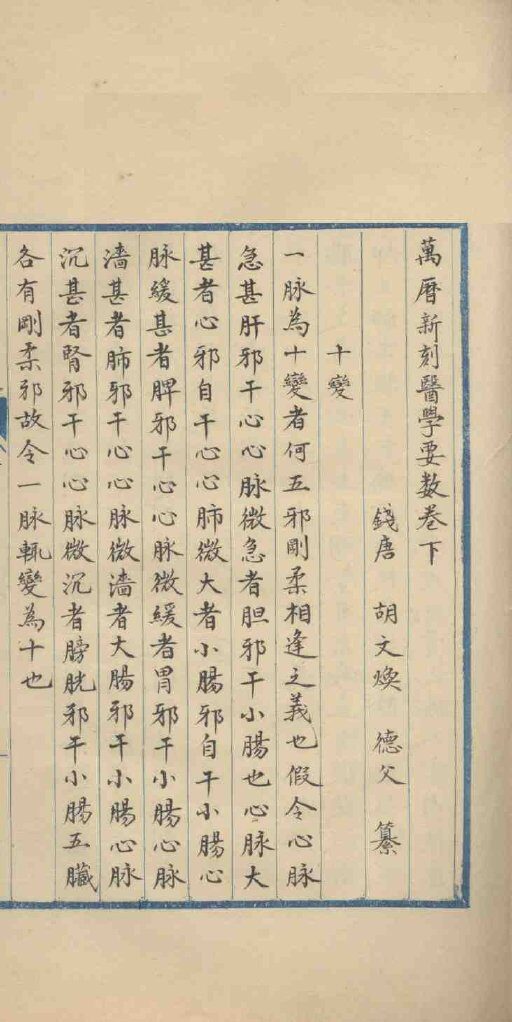 萬曆新刻醫學要数卷下
錢唐 胡文煥 德父 纂
十變
一脉為十變者何五邪剛柔相逢之義也假令心脉
急甚肝邪干心心脉微急者胆邪干小腸也心脉大
甚者心邪自干心心肺微大者小腸邪自干小腸心
脉緩甚者脾邪干心心脉微緩者胃邪干小腸心脉
濇甚者肺邪干心心脉微濇者大腸邪干小腸心脉
沉甚者腎邪干心心脉微沉者膀胱邪干小腸五臟
各有剛柔邪故令一脉輒變為十也